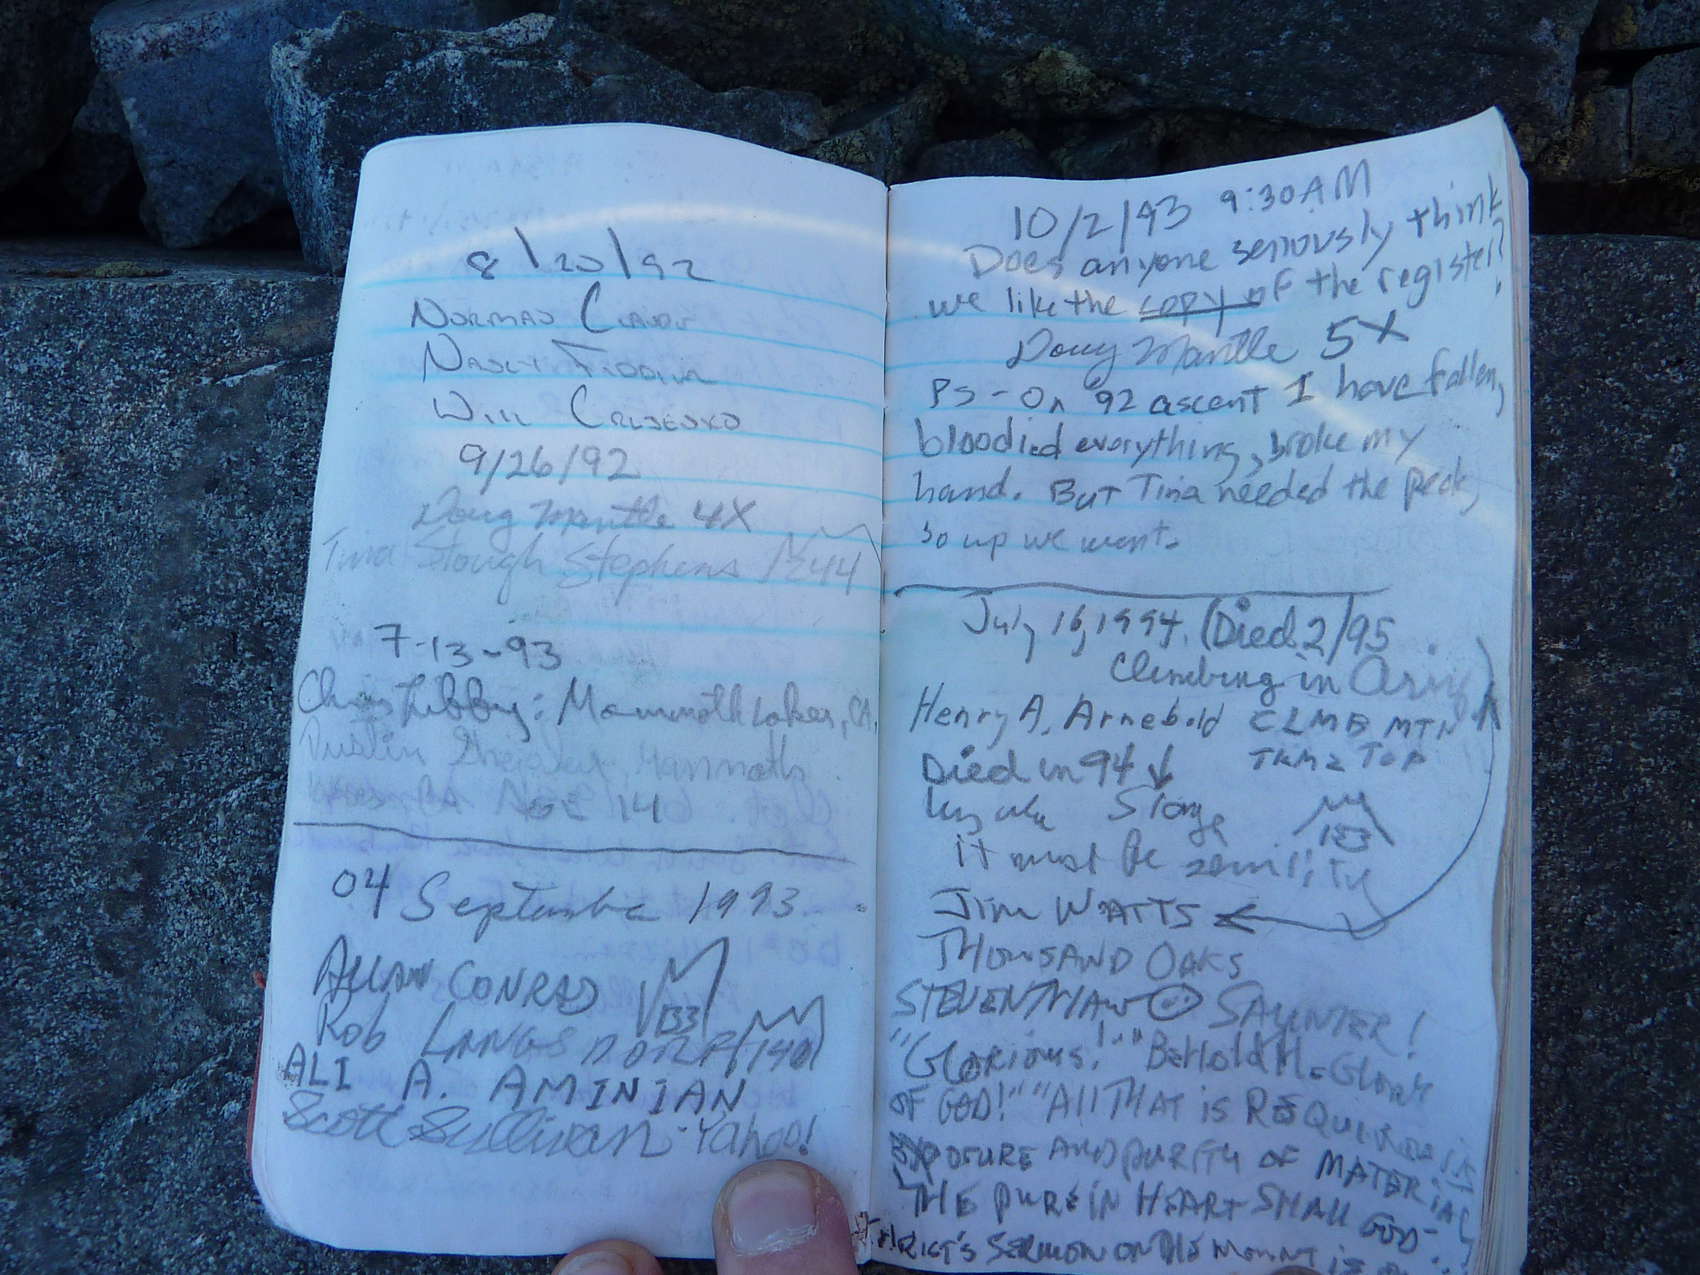 8/20/92
Norman
Nancy
Will
9/26/92
Doug Mantle 4X
Tina Stough Stephens 1244
7-13-93
Chris Libby: Mammoth Lakes, CA.
Dustin Mammoth
Lakes, CA Age 14
04 September 1993
Allan Conrad 133
Rob Langsdorf 140
ALI A. AMINIAN
Scott Sullivan - Yahoo!
10/2/93 9:30 AM
Does anyone seriously think
we like the copy of the register?
Doug Mantle 5X
PS - On '92 ascent I have fallen,
bloodied everything, broke my
hand. But Tina needed the peak,
so up we went.
July 16, 1994. (Died 2/95
Climbing in
Henry A. Arnebold CLMB MTN
Died in 94 TKM2 TOP
133
it must be senility
Jim WATTS
THOUSAND OAKS
STEVEN SAUNTER!
"GLORIOUS!" "BEHOLD THE GLORY
OF GOD!" "All THAT is REQUIRED is
EXPOSURE AND PURITY OF MATERIAL
THE PURE IN HEART SHALL GOD"
CHRIST'S SERMON ON THE MOUNT is